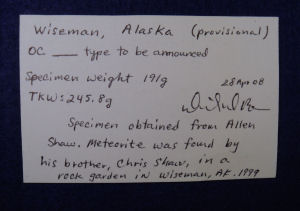 Wiseman, Alaska (provisional)
OC ___ type to be announced
Specimen weight 191g
28 Apr 08
TKW: 245.8g
Specimen obtained from Allen
Shaw. Meteorite was found by
his brother, Chris Shaw, in a
rock garden in Wiseman, AK. 1999